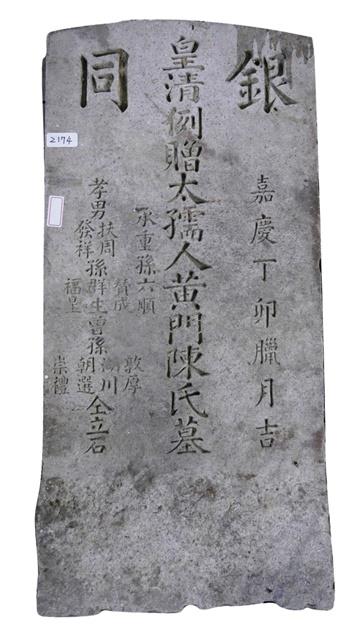 銀同
嘉慶丁卯臘月吉
皇清例贈太孺人黃門陳氏墓
承重孫六順
孝男扶周
發祥
孫群生
贊成
福星
曾孫
敦厚
湖川
朝選
崇禮
仝立石
2174